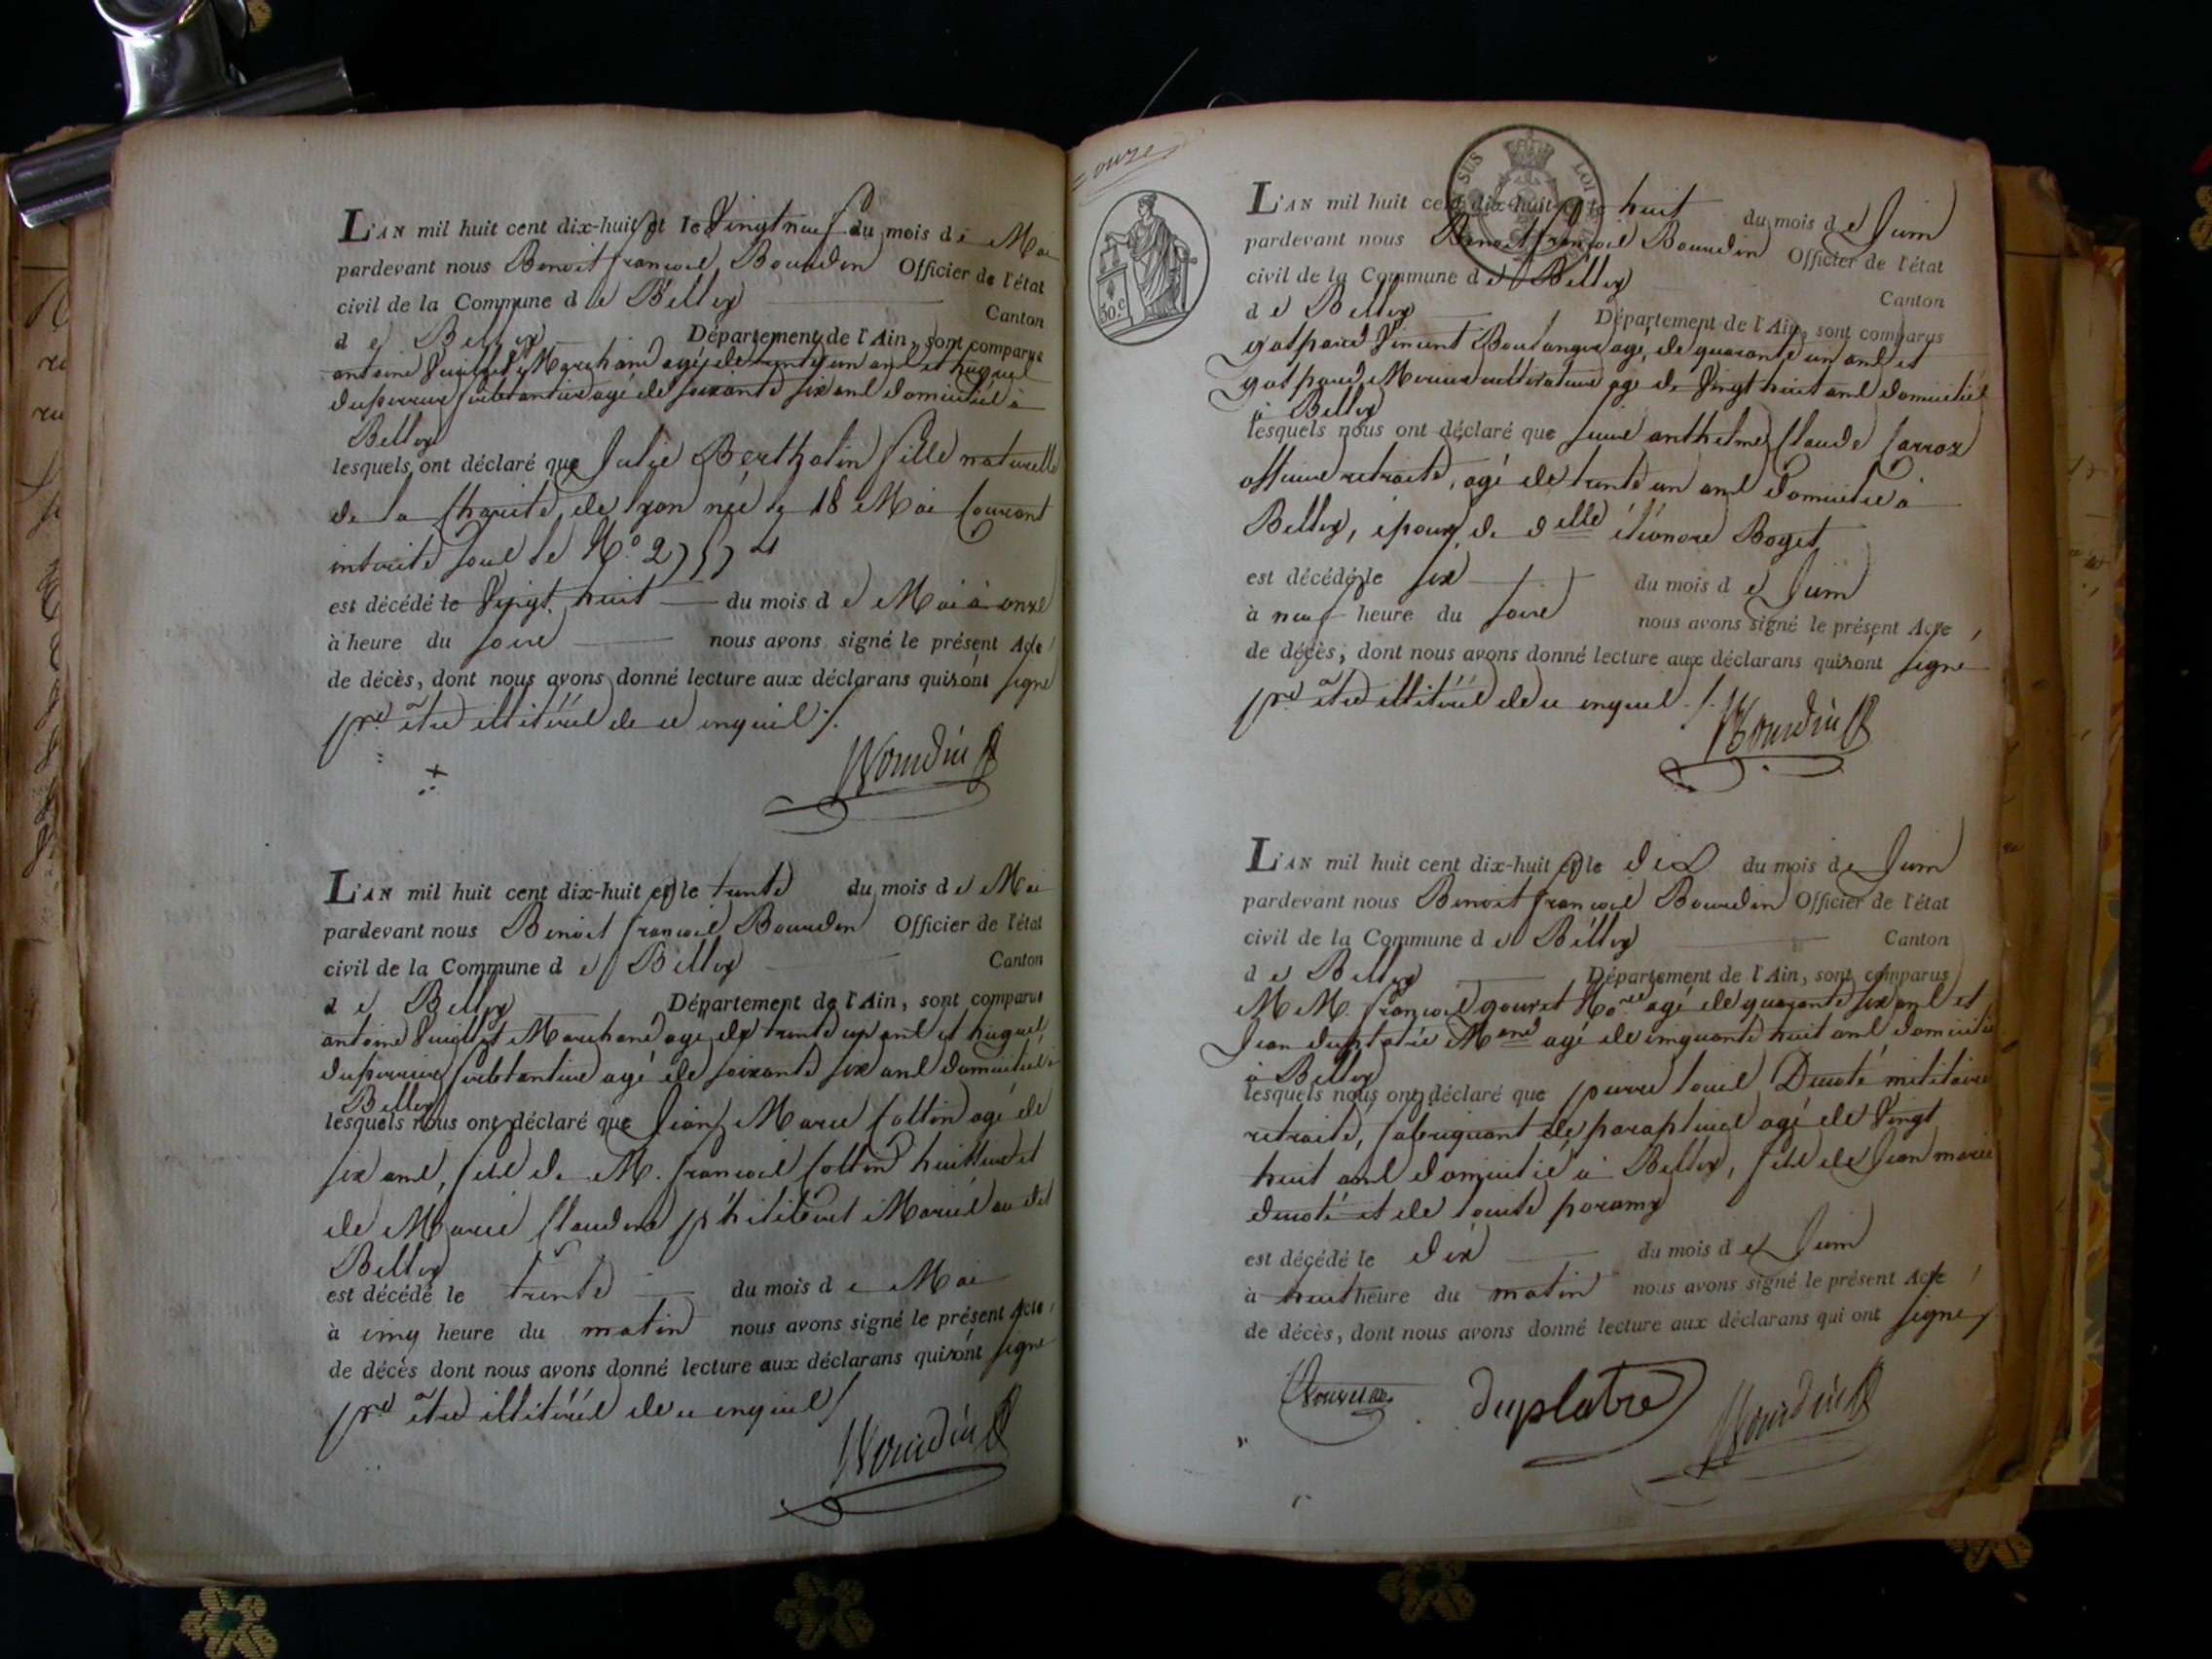 L'AN mil huit cent dix-huit et le Vingt neuf du mois de Mai
pardevant nous Benoit françois Bourdin Officier de l'état
civil de la Commune de Belley Canton
de Belley Département de l'Ain, sont comparus
antoine Vuillet Marchand agé de trente un ans et hugues
duperrier agé de soixante six ans domiciliés à
Belley
lesquels ont déclaré que Julie Bertholin fille naturelle
de la Charité de lyon née le 18 Mai Courant
sous le No.
est décédé le Vingt huit du mois de Mai à onze
à heure du soire nous avons signé le présent Acte
de décès, dont nous avons donné lecture aux déclarans qui n'ont signé
pr. être illitérés de ce enquis ./.
Bourdin
L'AN mil huit cent dix-huit et le trente du mois de Mai
pardevant nous Benoit françois Bourdin Officier de l'état
civil de la Commune de Belley Canton
de Belley Département de l'Ain, sont comparus
antoine Vuillet Marchand agé de trente un ans et hugues
duperrier agé de soixante six ans domiciliés à
Belley
lesquels nous ont déclaré que Jean Marie Cottin agé de
six ans, fils de M. françois Cottin huissier et
de Marie Claudine Mariés au dit
Belley
est décédé le trente du mois de Mai
à cinq heure du matin nous avons signé le présent Acte,
de décès dont nous avons donné lecture aux déclarans qui n'ont signé
pr. être illitérés de ce enquis /
Bourdin
onze
30.c
SUS LOI
L'AN mil huit cent dix-huit et le huit du mois de Juin
pardevant nous Benoit françois Bourdin Officier de l'état
civil de la Commune de Belley
de Belley Canton
Département de l'Ain, sont comparus
gaspard Vincent Boulanger agé de quarante un ans et
gaspard Mercier cultivateur agé de Vingt huit ans domiciliés
à Belley
lesquels nous ont déclaré que anthelme Claude Carroz
officier retraité, agé de trente un ans domicilié à
Belley, epoux de delle éléonore Boget
est décédé le six du mois de Juin
à neuf heure du soire nous avons signé le présent Acte
de décès, dont nous avons donné lecture aux déclarans qui n'ont signé
pr. être illitérés de ce enquis ./.
Bourdin
L'AN mil huit cent dix-huit et le dix du mois de Juin
pardevant nous Benoit françois Bourdin Officier de l'état
civil de la Commune de Belley Canton
de Belley Département de l'Ain, sont comparus
M M. françois agé de quarante six ans et
Jean duplatre Mand agé de cinquante huit ans domiciliés
à Belley
lesquels nous ont déclaré que pierre louis Ducoté militaire
retraité, fabriquant de parapluies agé de Vingt
huit ans domicilié à Belley, fils de Jean marie
ducoté et de louise
est décédé le dix du mois de Juin
à huit heure du matin nous avons signé le présent Acte
de décès, dont nous avons donné lecture aux déclarans qui ont signé
duplatre Bourdin